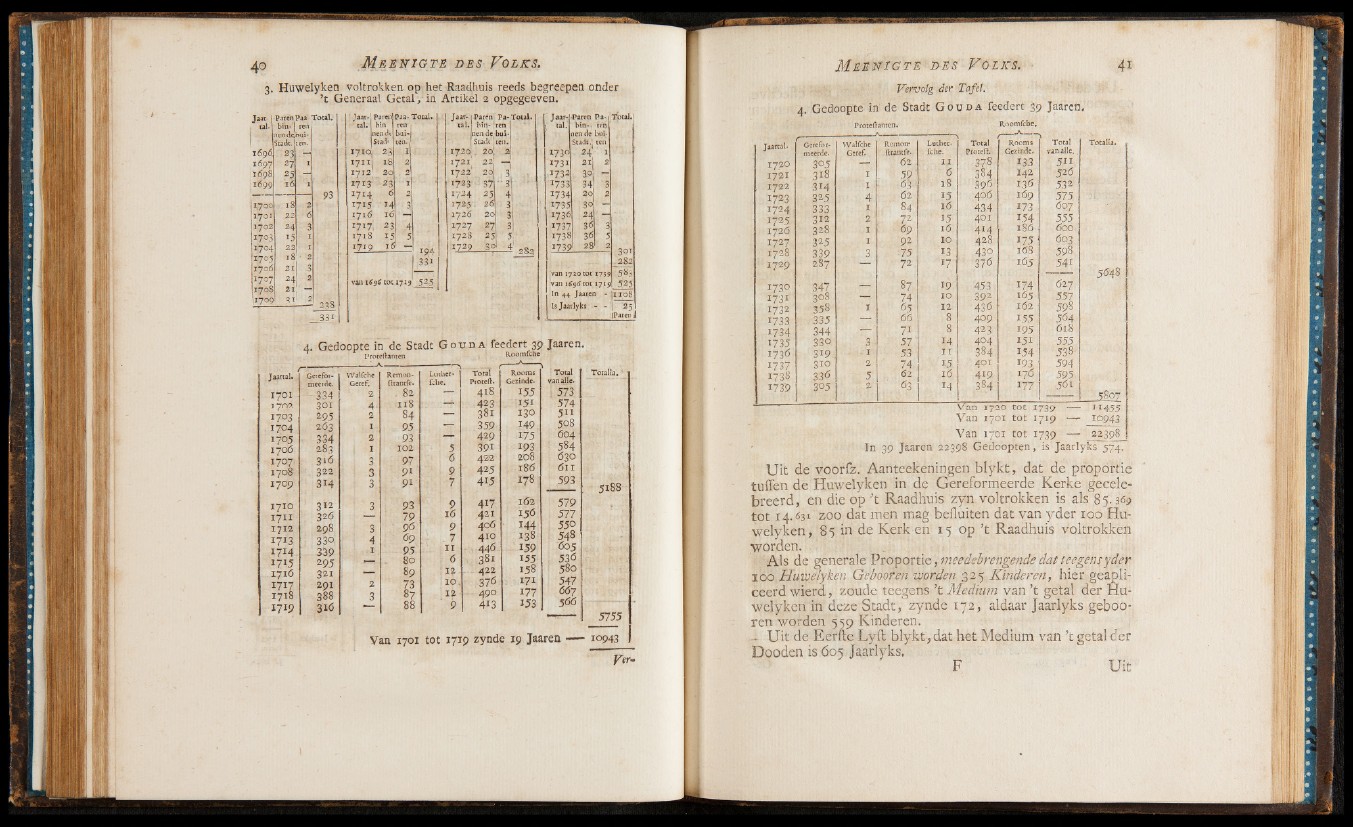 40 MEENIGTE DES VOLKS.
3. Huwelyken voltrokken op het Raadhuis reeds begreepen onder
't Generaal Getal, in Artikel 2 opgegeeven.
Jaar-tal. Paren binnen de Stadt. Paaren buiten. Total.
1696 23 —
1697 27 1
1698 25 —
1699 16 1
93
1700 18 2
1701 22 6
1702 24 3
1703 15 1
1704 22 1
1705 18 2
1706 21 3
1707 24 2
1708 21 —
1709 31 2
238
331
Jaar-tal. Paren binnen de Stadt Paaren buiten. Total.
1710 24 1
1711 18 2
1712 20 2
1713 23 1
1714 6 2
1715 14 3
1716 16 —
1717 23 4
1718 15 5
1719 16 —
194
331
van 1696 tot 1719 525
Jaar-tal. Paren binnen de Stadt Paren buiten. Total.
1720 20 2
1721 22 —
1722 20 3
1723 37 3
1724 25 4
1725 26 3
1726 20 3
1727 27 3
1728 25 5
1729 30 4
282
Jaar-tal. Paren binnen de Stadt. Paren buiten Total.
1730 24 1
1731 21 2
1732 30 —
1733 34 3
1734 20 2
1735 30 —
1736 24 —
1737 36 3
1738 36 5
1739 28 2
301
282
van 1720 tot 1739 583
van 1696 tot 1719 525
In 44 Jaaren - 1108
is Jaarlyks - - 25
Paren
4. Gedoopte in de Stadt GOUDA feedert 39 Jaaren.
Proteftanten Roomfche
Jaartal. Gerefor-meerde. Walfche Geref. Remon-ftrantfe. Luther-fche. Total Proteft. Rooms Gezinde. Total van alle. Totalla.
1701 334 2 82 — 418 155 573
1702 301 4 118 — 423 151 574
1703 295 2 84 — 381 130 511
1704 263 1 95 — 359 149 508
1705 334 2 93 — 429 175 604
1706 283 1 102 5 391 193 584
1707 316 3 97 6 422 208 630
1708 322 3 91 9 425 186 611
1709 314 3 91 7 415 178 593
5188
1710 312 3 93 9 417 162 579
1711 326 — 79 16 421 156 577
1712 298 3 96 9 406 144 550
1713 330 4 69 7 410 138 548
1714 339 1 95 11 446 159 605
1715 295 — 80 6 381 155 536
1716 321 — 89 12 422 158 580
1717 291 2 73 10 376 171 547
1718 388 3 87 12 490 177 667
1719 316 — 88 9 413 153 566
5755
Van 1701 tot 1719 zynde 19 Jaaren — 10943
Ver-
MEENIGTE DES VOLKS. 41
Vervolg der Tafel.
4. Gedoopte in de Stadt GOUDA feedert 39 Jaaren.
Proteftanten. Roomfche.
Jaartal. Gerefor-meerde. Walfche Geref. Remon-ftrantfe. Luther-fche. Total Proteft. Rooms Gezinde. Total van alle. Totalla.
1720 305 — 62 11 378 133 511
1721 318 1 59 6 384 142 526
1722 314 1 63 18 396 136 532
1723 325 4 62 15 406 169 575
1724 333 1 84 16 434 173 607
1725 312 2 72 15 401 154 555
1726 328 1 69 16 414 186 600
1727 325 1 92 10 428 175 603
1728 339 3 75 13 430 168 598
1729 287 — 72 17 376 165 541
5648
1730 347 — 87 19 453 174 627
1731 308 — 74 10 392 165 557
1732 358 1 65 12 436 162 598
1733 335 — 66 8 409 155 564
1734 344 — 71 8 423 195 618
1735 330 3 57 14 404 151 555
1736 319 1 53 11 384 154 538
1737 310 2 74 15 401 193 594
1738 336 5 62 16 419 176 595
1739 305 2 63 14 384 177 561
5807
Van 1720 tot 1739 — 11455
Van 1701 tot 1719 — 10943
Van 1701 tot 1739 — 22398
In 39 Jaaren 22398 Gedoopten, is Jaarlyks 574.
Uit de voorfz. Aanteekeningen blykt, dat de proportie
tuffen de Huwelyken in de Gereformeerde Kerke gecele-
breerd, en die op 't Raadhuis zyn voltrokken is als 85.369
tot 14.631 zoo dat men mag befluiten dat van yder 100 Hu-
welyken, 85 in de Kerk en 15 op 't Raadhuis voltrokken
worden.
Als de generale Proportie, meedebrengende dat teegens yder
100 Huwelyken Gebooren worden 325 Kinderen, hier geapli-
ceerd wierd, zoude teegens 't Medium van 't getal der Hu-
welyken in deze Stadt, zynde 172, aldaar Jaarlyks geboo-
ren worden 559 Kinderen.
Uit de Eerfte Lyft blykt, dat het Medium van 't getal der
Dooden is 605 Jaarlyks.
F Uit